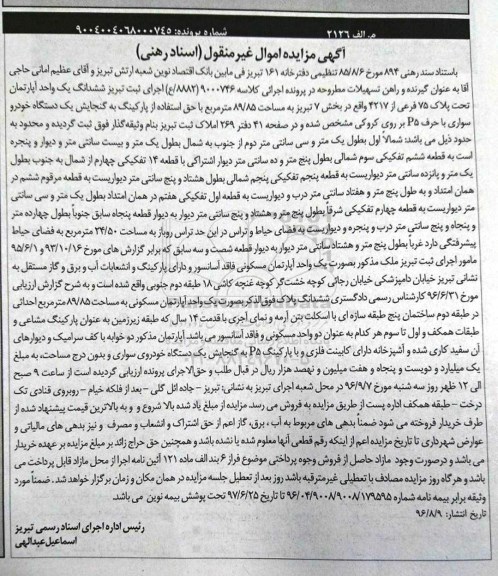 م. الف ۲۱۲۶ شماره پرونده: ۹۰۰۴۰۰۴۰۶۸۰۰۰۷۴۵
آگهی مزایده اموال غیر منقول (اسناد رهنی)
باستناد سند رهنی ۸۹۴ مورخ ۸۵/۸/۶ تنظیمی دفترخانه ۱۶۱ تبریز فی مابین بانک اقتصاد نوین شعبه ارتش تبریز و آقای عظیم امانی حاجی
آقا به عنوان گیرنده و راهن تسهیلات مطروحه در پرونده اجرائی کلاسه ۹۰۰۰۷۴۶ (۸۸۸۲/ع) اجرای ثبت تبریز ششدانگ یک واحد آپارتمان
تحت پلاک ۷۵ فرعی از ۴۲۱۷ واقع در بخش ۷ تبریز به مساحت ۸۹/۸۵ مترمربع با حق استفاده از پارکینگ به گنجایش یک دستگاه خودرو
سواری با حرف P۵ بر روی کروکی مشخص شده و در صفحه ۴۱ دفتر ۲۶۹ املاک ثبت تبریز بنام وثیقه‌گذار فوق ثبت گردیده و محدود به
حدود ذیل می‌باشد: شمالاً اول بطول یک متر و سی سانتی متر دوم از جنوب به شمال بطول یک متر و بیست سانتی متر و دیوار و پنجره
است به قطعه ششم تفکیکی سوم شمالی بطول پنج متر و ده سانتی متر دیوار اشتراکی با قطعه ۱۴ تفکیکی چهارم از شمال به جنوب بطول
یک متر و پانزده سانتی متر دیواریست به قطعه پنجم تفکیکی پنجم شمالی بطول هشتاد و پنج سانتی متر دیواریست به قطعه مرقوم ششم در
همان امتداد و به طول پنج متر و هفتاد سانتی متر درب و دیواریست به قطعه اول تفکیکی هفتم در همان امتداد بطول یک متر و سی سانتی
متر دیواریست به قطعه چهارم تفکیکی شرقاً بطول پنج متر و هشتاد و پنج سانتی متر دیوار به دیوار قطعه پنجاه سابق جنوباً بطول چهارده متر
و پنجاه و پنج سانتی متر درب و پنجره و دیواریست به فضای حیاط و تراس در این حد تراس روباز به مساحت ۲۴/۵۰ مترمربع به فضای حیاط
پیشرفتگی دارد غرباً بطول پنج متر و هشتاد سانتی متر دیوار به دیوار قطعه شصت و سه سابق که برابر گزارش های مورخ ۹۳/۱۰/۱۶ و ۹۵/۶/۱
مامور اجرای ثبت تبریز ملک مذکور بصورت یک واحد آپارتمان مسکونی فاقد آسانسور و دارای پارکینگ و انشعابات آب و برق و گاز مستقل به
نشانی تبریز خیابان دامپزشکی خیابان رجائی کوچه خشت‌گر کوچه غنچه کاشی ۱۸ طبقه دوم جنوبی واقع شده است و به شرح گزارش ارزیابی
مورخ ۹۶/۶/۳۱ کارشناس رسمی دادگستری ششدانگ پلاک فوق‌الذکر بصورت یک واحد آپارتمان مسکونی به مساحت ۸۹/۸۵ مترمربع احداثی
در طبقه دوم ساختمان پنج طبقه سازه ای با اسکلت بتن آرمه و نمای آجری با قدمت ۱۴ سال که طبقه زیرزمین به عنوان پارکینگ مشاعی و
طبقات همکف و اول تا سوم هر کدام به عنوان دو واحد مسکونی و فاقد آسانسور می باشد. آپارتمان مذکور دو خوابه با کف سرامیک و دیوارهای
آن سفید کاری شده و آشپزخانه دارای کابینت فلزی و با پارکینگ P۵ به گنجایش یک دستگاه خودروی سواری و بدون درج مساحت، به مبلغ
یک میلیارد و دویست و پنجاه و هفت میلیون و نهصد هزار ریال در قبال طلب و حق‌الاجرای پرونده ارزیابی گردیده است از ساعت ۹ صبح
الی ۱۲ ظهر روز سه شنبه مورخ ۹۶/۹/۷ در محل شعبه اجرای تبریز به نشانی: تبریز – جاده ائل گلی – بعد از فلکه خیام – روبروی قنادی تک
درخت – طبقه همکف اداره پست از طریق مزایده به فروش می رسد. مزایده از مبلغ یاد شده بالا شروع و و به بالاترین قیمت پیشنهاد شده از
طرف خریدار فروخته می شود ضمناً بدهی های مربوط به آب، برق، گاز اعم از حق اشتراک و انشعاب و مصرف و نیز بدهی های مالیاتی و
عوارض شهرداری تا تاریخ مزایده اعم از اینکه رقم قطعی آنها معلوم شده یا نشده باشد و همچنین حق حراج زائد بر مبلغ مزایده بر عهده خریدار
می باشد و درصورت وجود مازاد حاصل از فروش وجوه پرداختی موضوع فراز ۶ بند الف ماده ۱۲۱ آئین نامه اجرا از محل مازاد قابل پرداخت می
باشد و هرگاه روز مزایده مصادف با تعطیلی غیرمترقبه باشد روز بعد از تعطیل جلسه مزایده در همان مکان و زمان برگزار خواهد شد. ضمناً مورد
وثیقه برابر بیمه نامه شماره ۹۶/۰۴/۹۰۰۸/۹۰۰۸/۱۷۹۵۹۵ تا تاریخ ۹۷/۶/۲۵ تحت پوشش بیمه نوین می باشد.
تاریخ انتشار: ۹۶/۸/۹
رئیس اداره اجرای اسناد رسمی تبریز
اسماعیل عبدالهی